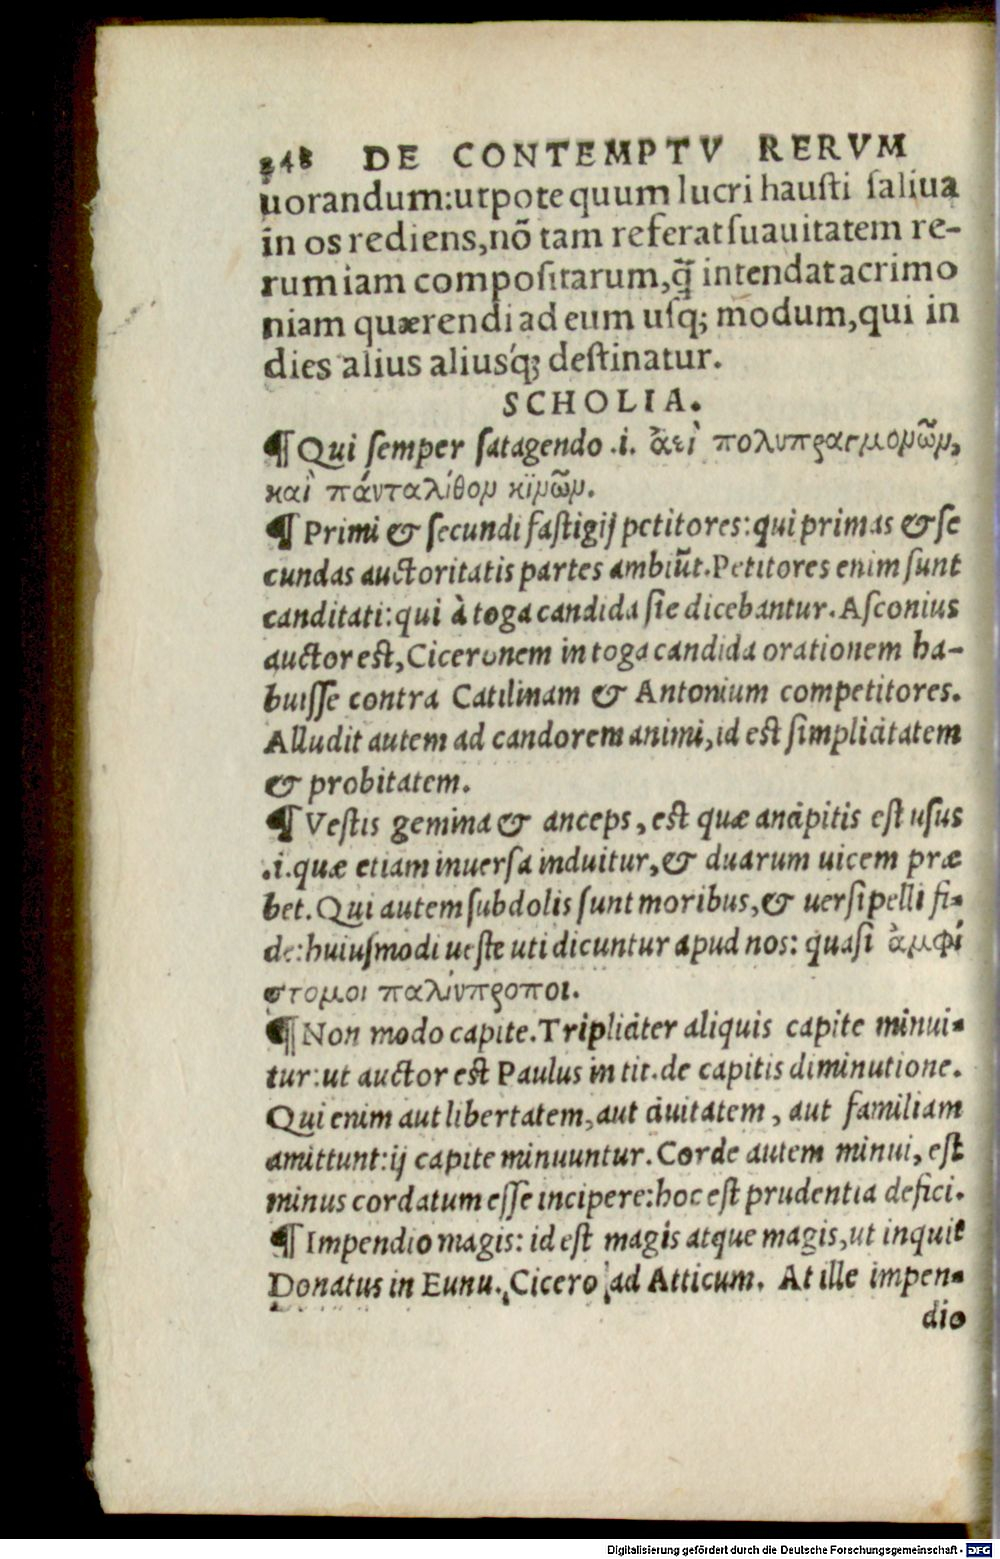 248 DE CONTEMPTV RERVM
uorandum:utpote quum lucri hausti saliua
in os rediens,nõ tam referat suauitatem re-
rum iam compositarum,q̃ intendat acrimo
niam quærendi ad eum usq; modum,qui in
dies alius aliusq́; destinatur.
SCHOLIA.
¶ Qui semper satagendo .i. ἀεὶ πολυπραγμονῶν,
καὶ πάνταλίθον κινῶν.
¶ Primi & secundi fastigij petitores:qui primas & se
cundas auctoritatis partes ambiũt.Petitores enim sunt
canditati:qui à toga candida sie dicebantur.Asconius
auctor est,Ciceronem in toga candida orationem ha-
buisse contra Catilinam & Antonium competitores.
Alludit autem ad candorem animi,id est simplicitatem
& probitatem.
¶ Vestis gemina & anceps,est quæ ancipitis est usus
.i.quæ etiam inuersa induitur,& duarum uicem præ
bet.Qui autem subdolis sunt moribus,& uersipelli fi-
de:huiusmodi ueste uti dicuntur apud nos: quasi ἀμφί
στομοι παλίνπροποι.
¶ Non modo capite.Tripliciter aliquis capite minui-
tur:ut auctor est Paulus in tit.de capitis diminutione.
Qui enim aut libertatem,aut ciuitatem, aut familiam
amittunt:ij capite minuuntur.Corde autem minui, est
minus cordatum esse incipere:hoc est prudentia defici.
¶ Impendio magis: id est magis atque magis,ut inquit
Donatus in Eunu. Cicero ad Atticum. At ille impen-
dio
Digitalisierung gefördert durch die Deutsche Forschungsgemeinschaft - DFG